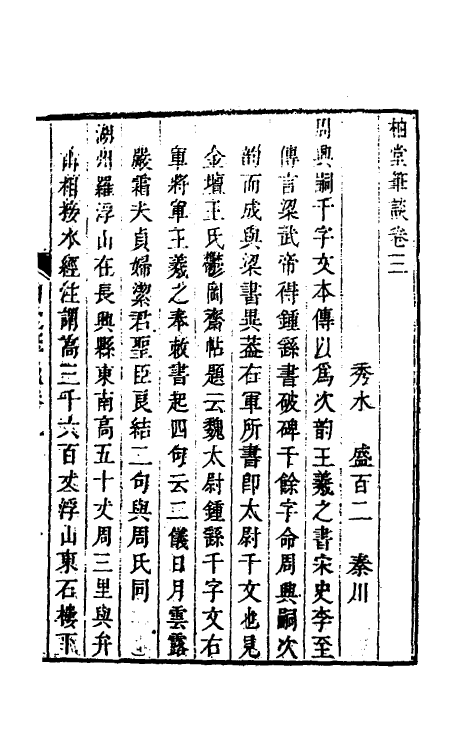 柚堂筆談卷三
秀水 盛百二 秦川
周興嗣千字文本傳以爲次韵王羲之書宋史李至
傳言梁武帝得鍾繇書破碑千餘字命周興嗣次
韵而成與梁書異葢右軍所書卽太尉千文也見
金壇王氏鬱岡齋帖題云魏太尉鍾繇千字文右
軍將軍王羲之奉敕書起四句云二儀日月雲露
嚴霜夫貞婦潔君聖臣良結二句與周氏同
湖州羅浮山在長興縣東南高五十丈周三里與弁
山相接水經注謂高三千六百丈浮山東石樓下